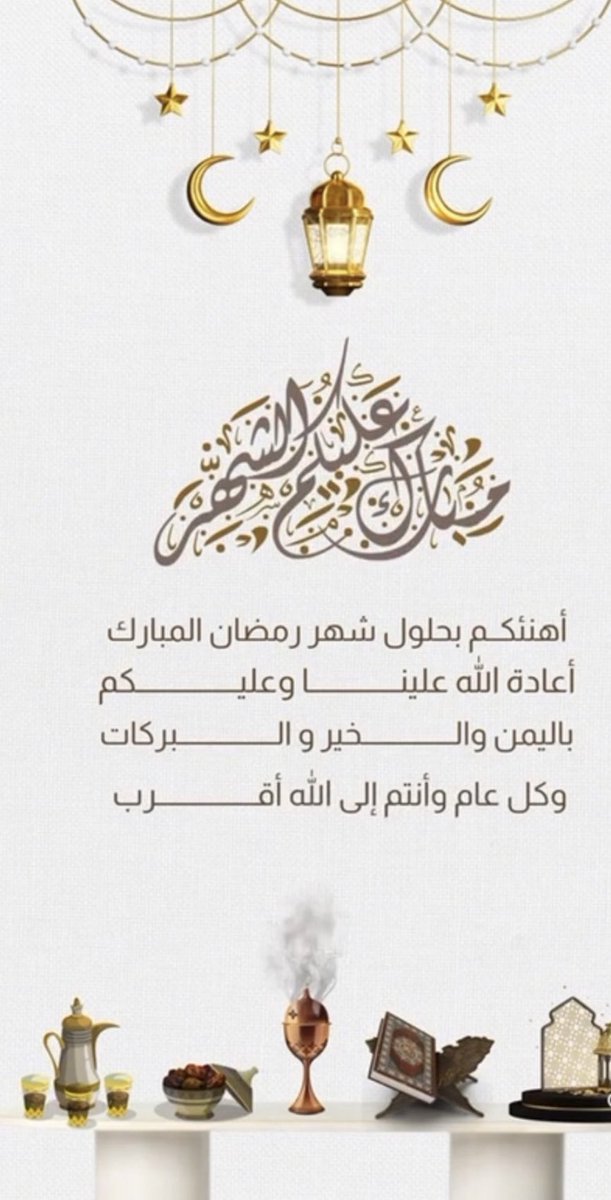 مبارك عليكم الشهر
أهنئكم بحلول شهر رمضان المبارك
أعادة الله علينا وعليكم
باليمن والخير و البركات
وكل عام وأنتم إلى الله أقرب